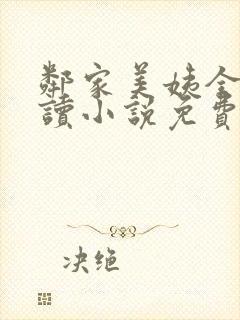 鄰家美姨全
讀小說免費
决绝